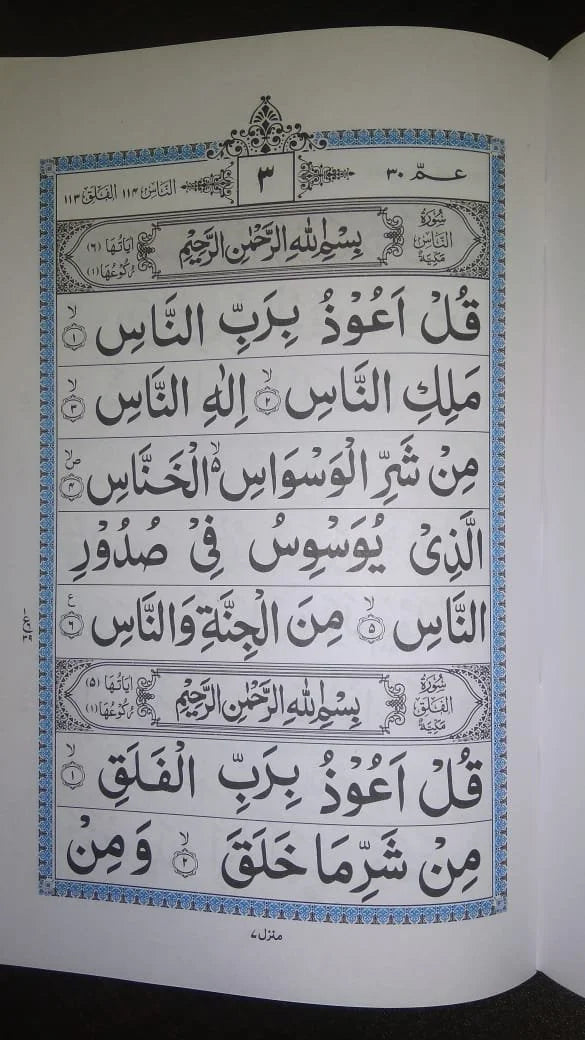 عمّ ٣٠
٣
الناس ١١٤ الفلق ١١٣
سُوْرَةُ النَّاسِ مَكِّيَّةٌ
بِسْمِ اللهِ الرَّحْمٰنِ الرَّحِيْمِ
اٰيَاتُهَا (٦) رُكُوْعُهَا (١)
قُلْ اَعُوْذُ بِرَبِّ النَّاسِ ۙ﴿١﴾
مَلِكِ النَّاسِ ۙ﴿٢﴾ اِلٰهِ النَّاسِ ۙ﴿٣﴾
مِنْ شَرِّ الْوَسْوَاسِ ۵ۙ الْخَنَّاسِ ۪ۙ﴿٤﴾
الَّذِىْ يُوَسْوِسُ فِىْ صُدُوْرِ
النَّاسِ ۙ﴿٥﴾ مِنَ الْجِنَّةِ وَالنَّاسِ ﴿٦﴾ ع
سُوْرَةُ الْفَلَقِ مَكِّيَّةٌ
بِسْمِ اللهِ الرَّحْمٰنِ الرَّحِيْمِ
اٰيَاتُهَا (٥) رُكُوْعُهَا (١)
قُلْ اَعُوْذُ بِرَبِّ الْفَلَقِ ۙ﴿١﴾
مِنْ شَرِّ مَا خَلَقَ ۙ﴿٢﴾ وَمِنْ
منزل ٧